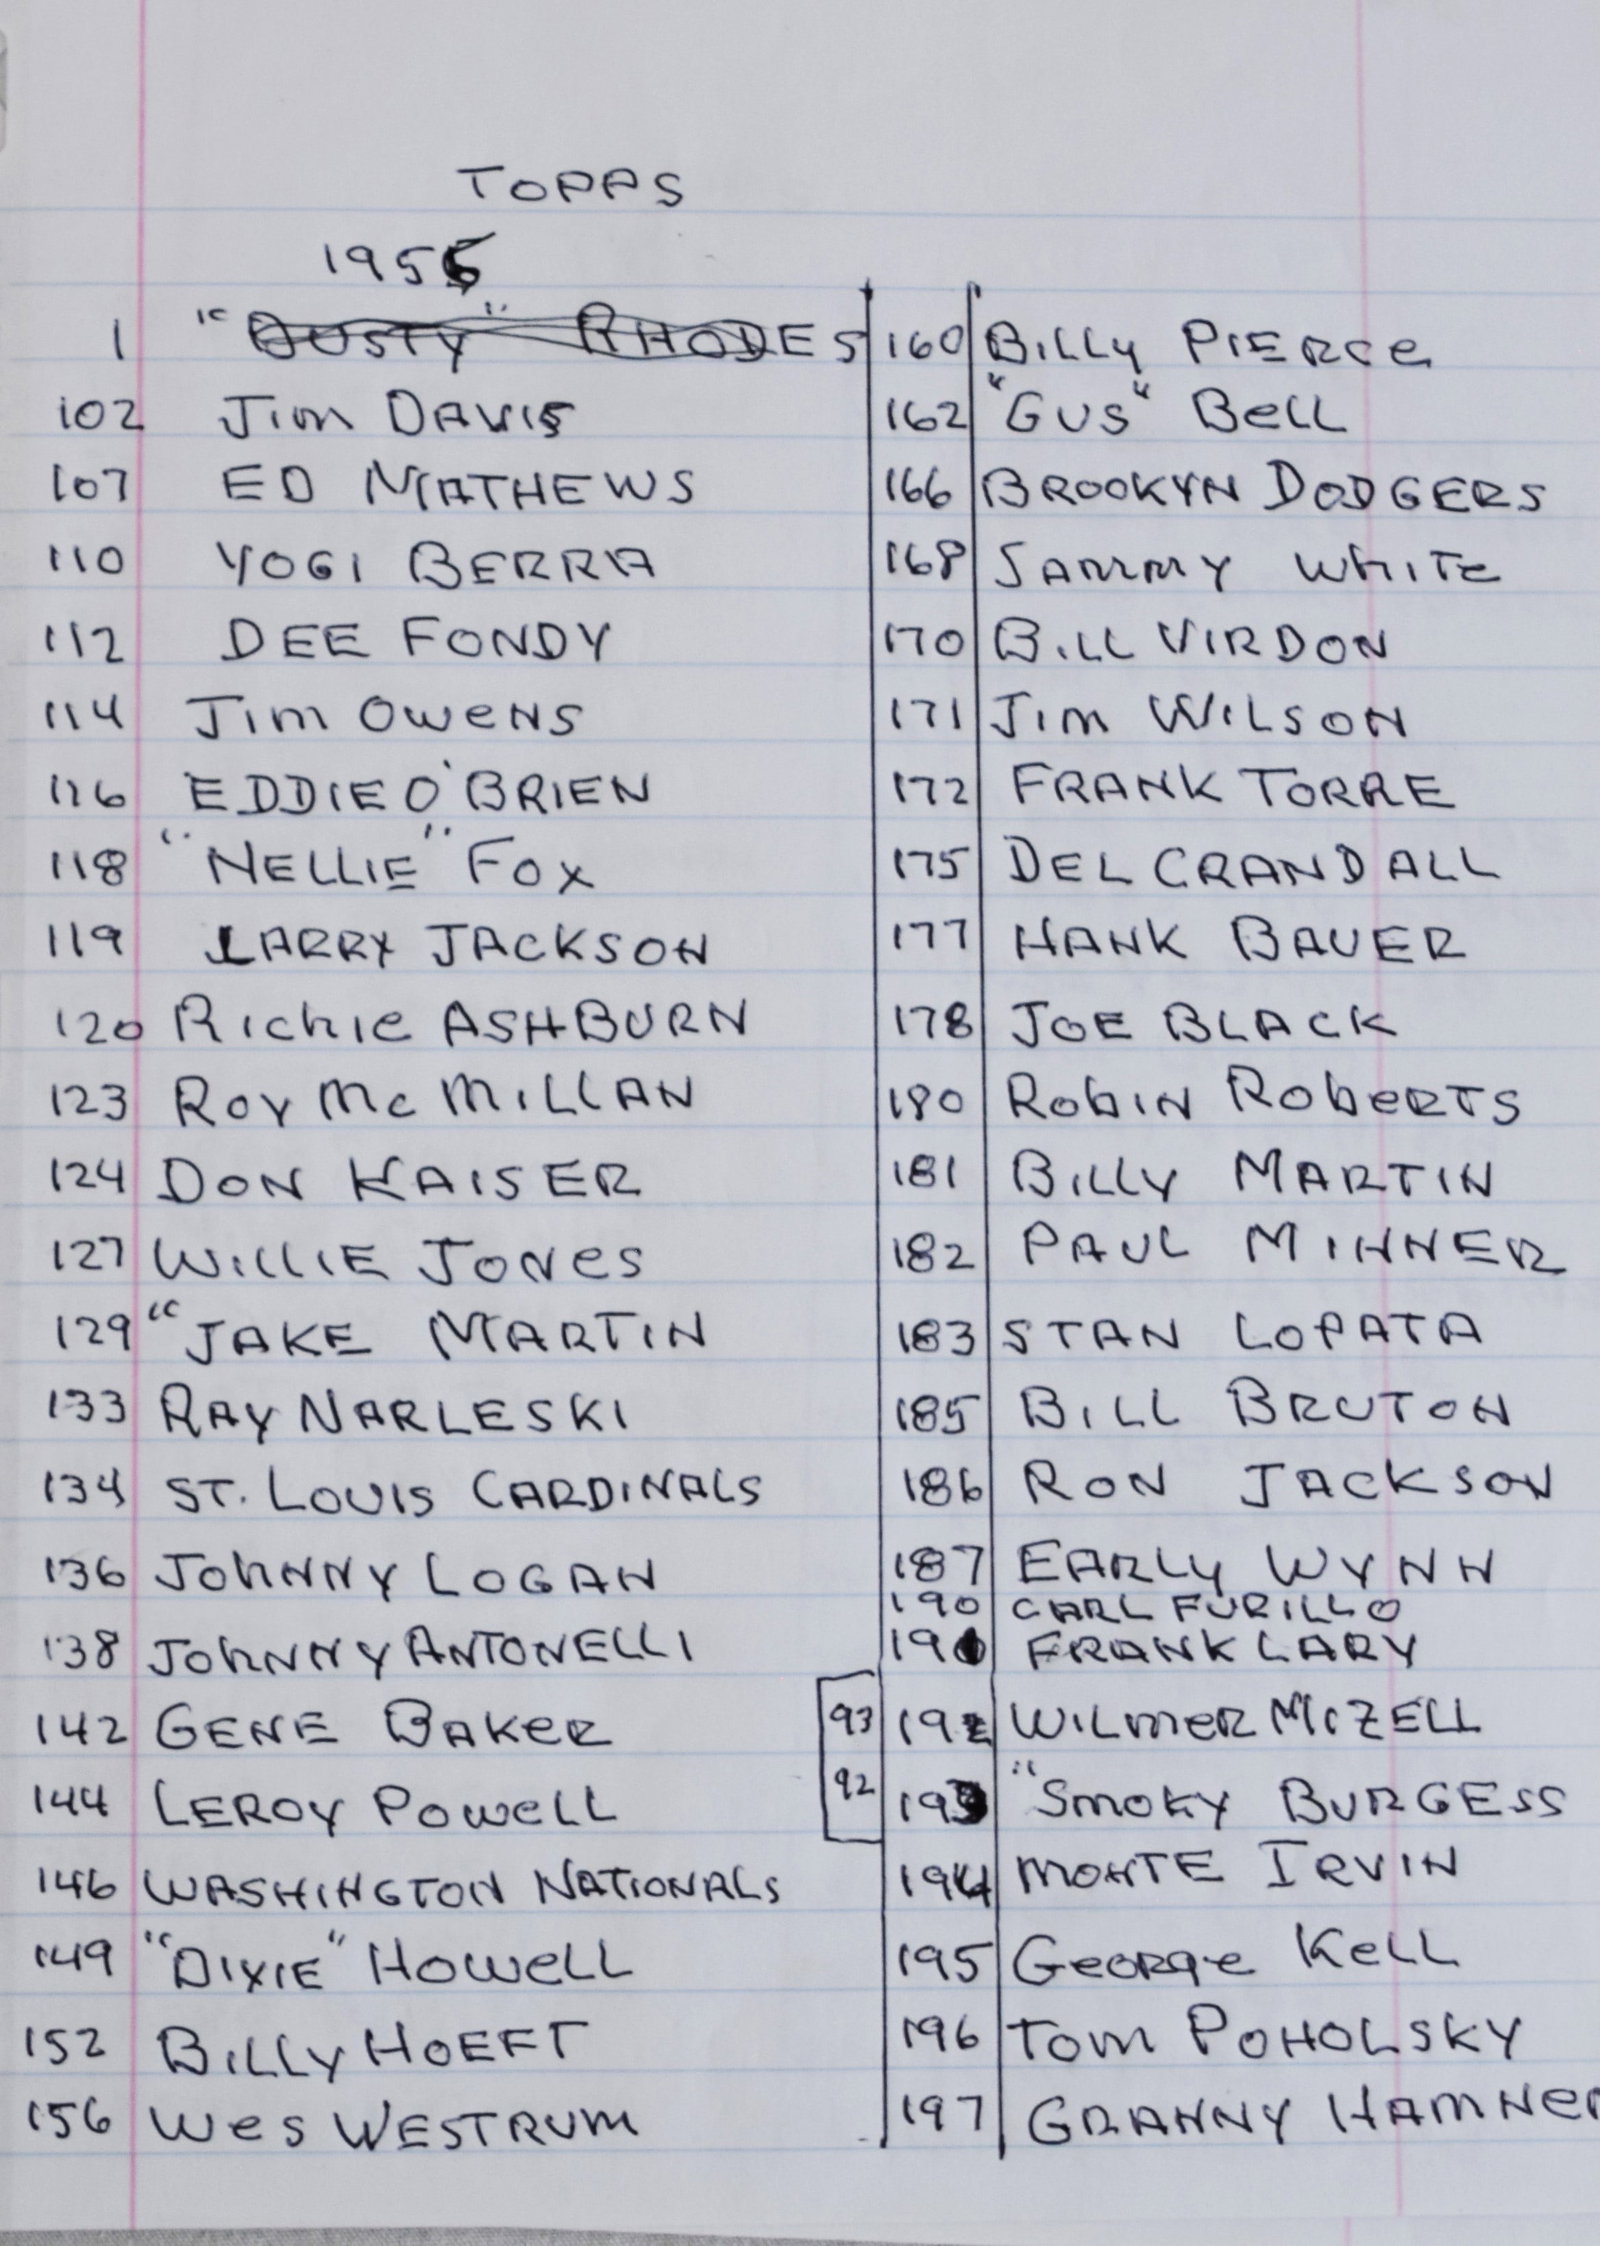 TOPPS
1956
1 "DUSTY" RHODES
102 Jim DAVIS
107 ED MATHEWS
110 YOGI BERRA
112 DEE FONDY
114 Jim OWENS
116 EDDIE O'BRIEN
118 "NELLIE" FOX
119 LARRY JACKSON
120 Richie ASHBURN
123 ROY McMILLAN
124 DON KAISER
127 WILLIE JONES
129 "JAKE MARTIN
133 RAY NARLESKI
134 ST. LOUIS CARDINALS
136 JOHNNY LOGAN
138 JOHNNY ANTONELLI
142 GENE BAKER
144 LEROY POWELL
146 WASHINGTON NATIONALS
149 "DIXIE" HOWELL
152 BILLY HOEFT
156 WES WESTRUM
160 BILLY PIERCE
162 "GUS" BELL
166 BROOKYN DODGERS
168 SAMMY WHITE
170 BILL VIRDON
171 JIM WILSON
172 FRANK TORRE
175 DEL CRANDALL
177 HANK BAUER
178 JOE BLACK
180 ROBIN ROBERTS
181 BILLY MARTIN
182 PAUL MINNER
183 STAN LOPATA
185 BILL BRUTON
186 RON JACKSON
187 EARLY WYNN
190 CARL FURILLO
191 FRANK LARY
93 192 WILMER MIZELL
92 193 "SMOKY BURGESS
194 MONTE IRVIN
195 GEORGE KELL
196 TOM POHOLSKY
197 GRANNY HAMNER